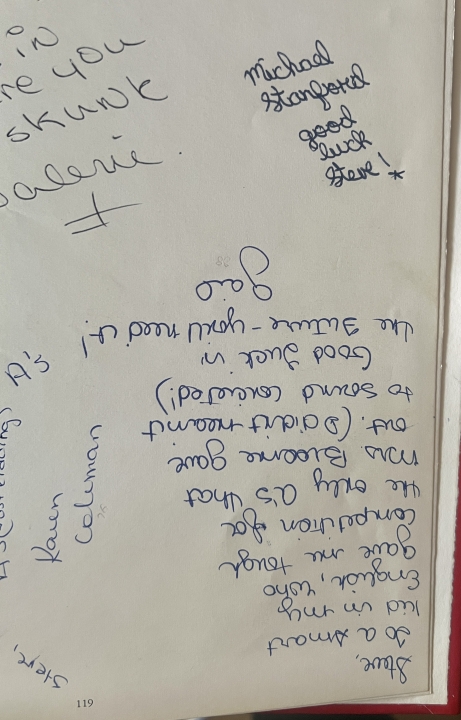 in
you
skunk
Valerie.
Michael
Stanford
good
luck
Steve! *
Steve,
To a smart
kid in my
English, who
gave me tough
competition for
the only A's that
Mrs. Broome gave
out. (Didn't mean it
to sound conceited!)
Good Luck in
the future - you'll need it!
Gaio
88
A's
Karen
Coleman
Steve,
119